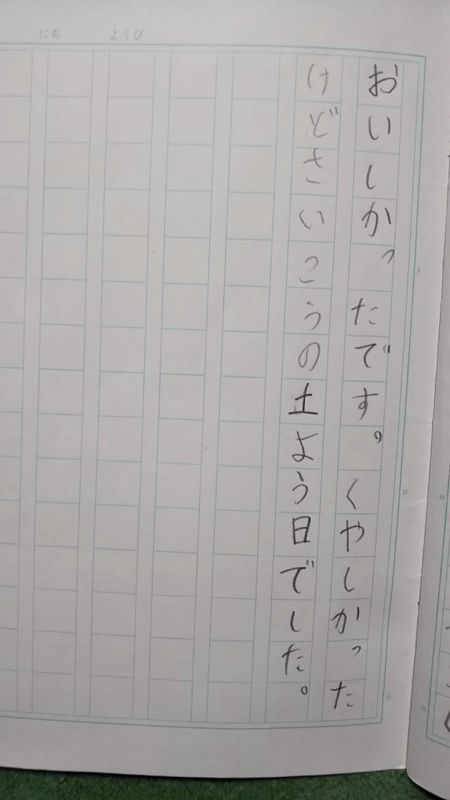 おいしかったです。くやしかった
けどさいこうの土よう日でした。
ようび
にち